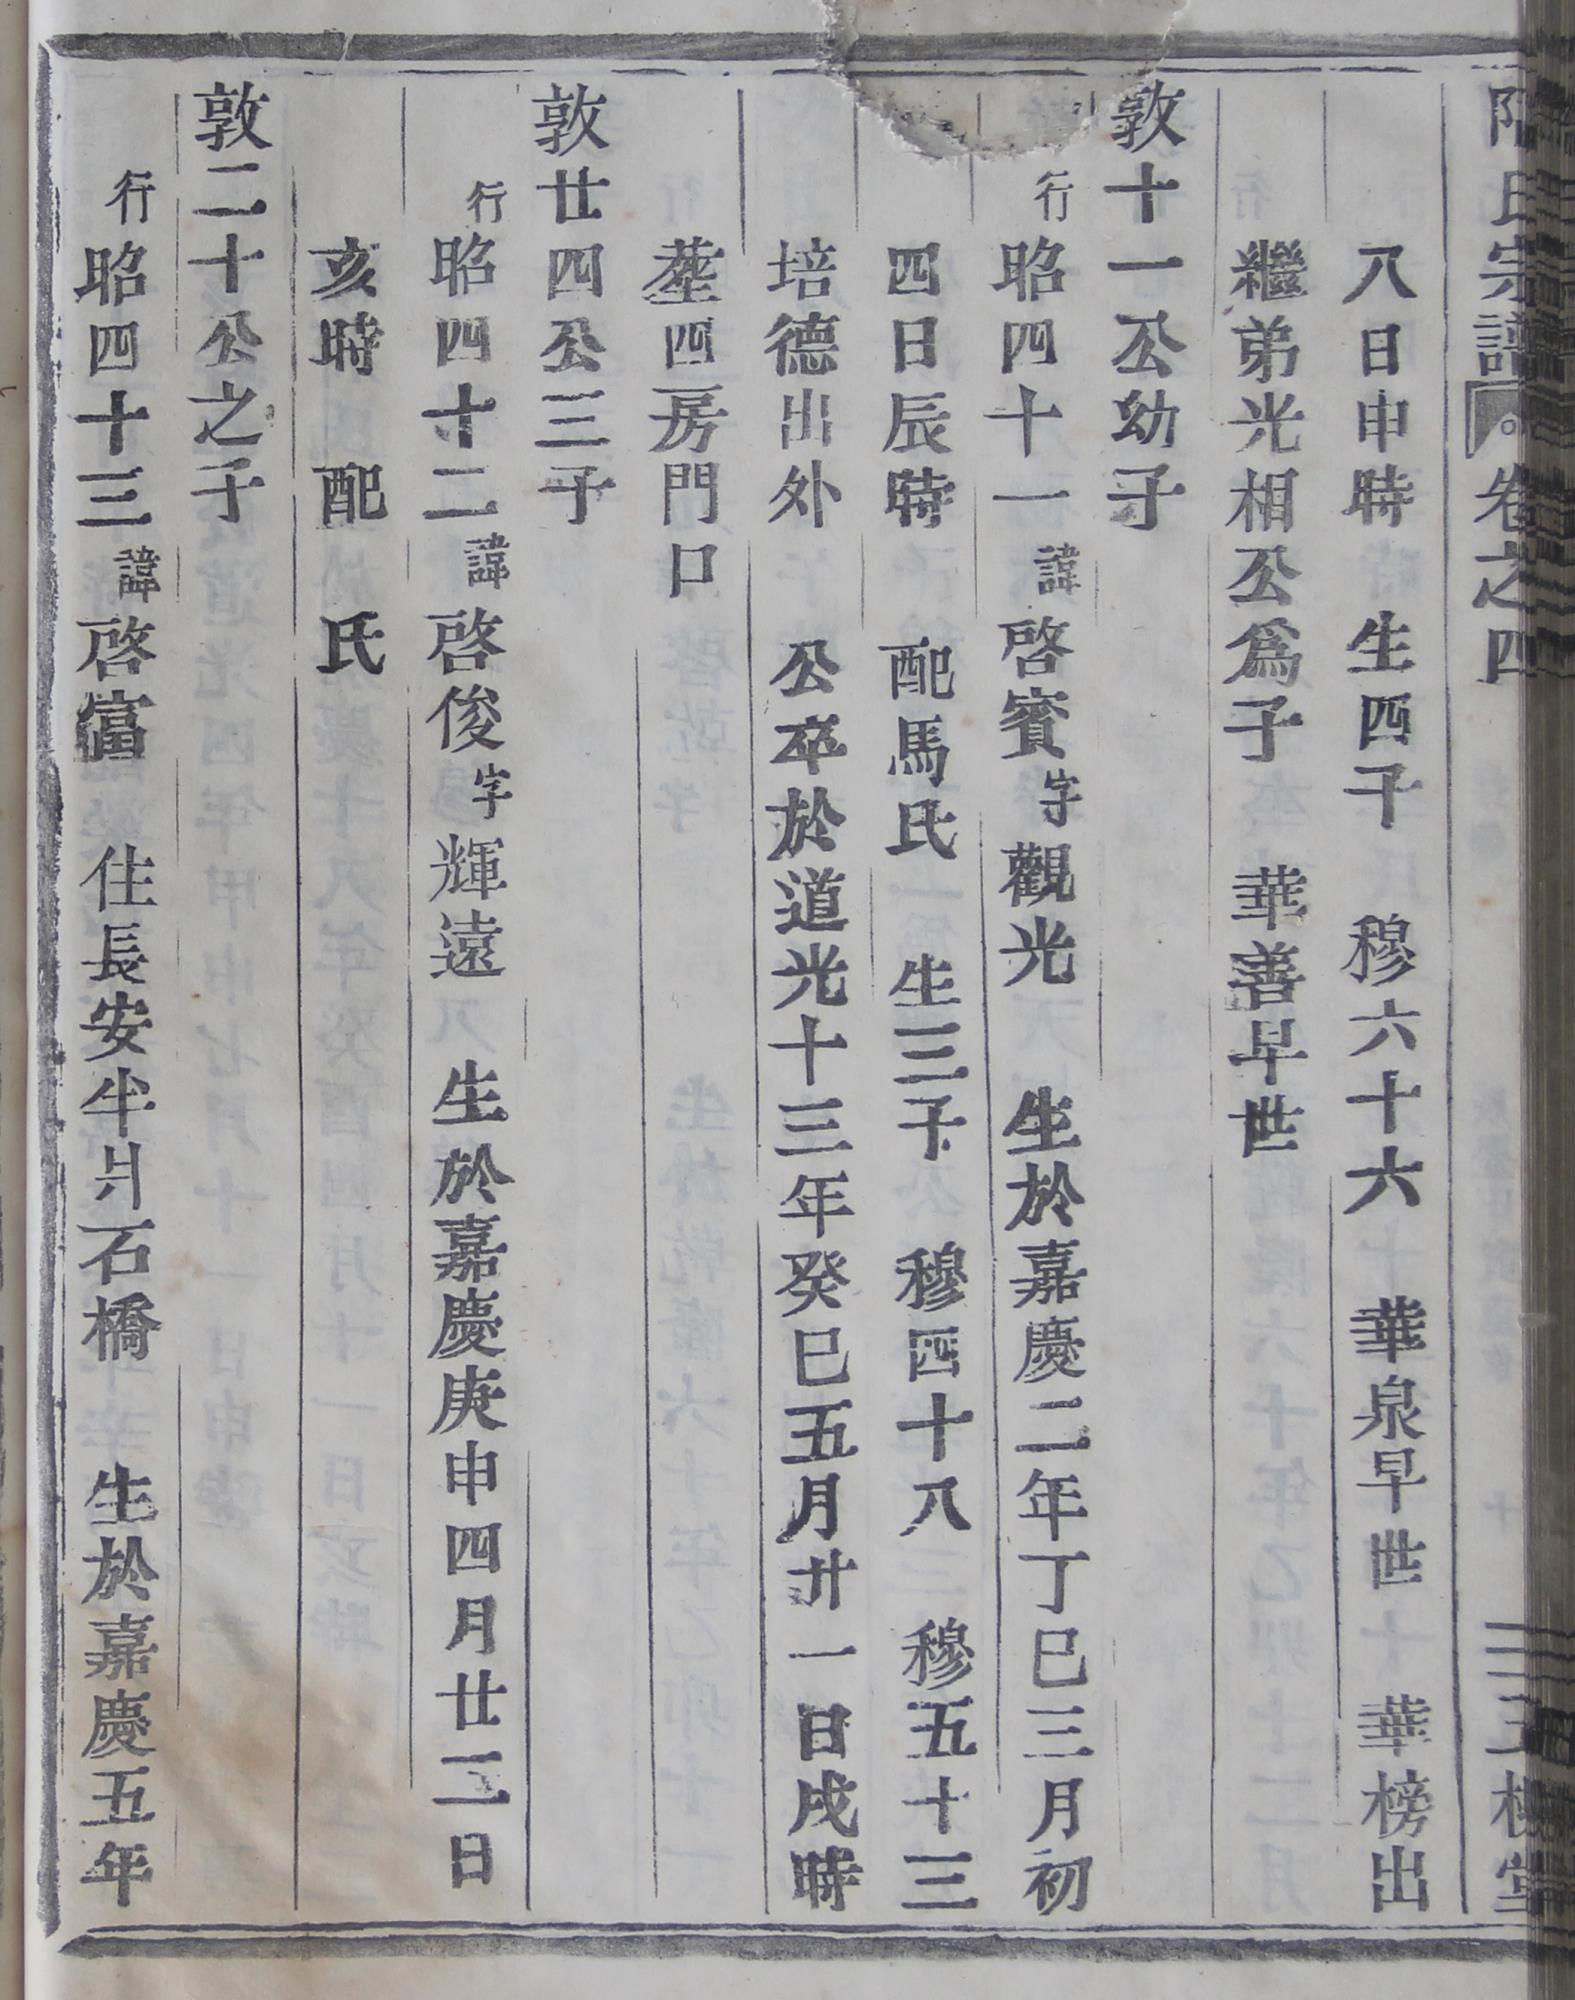 氏宗譜 卷之四 三五 堂
八日申時 生四子 穆六十六 華泉早世 華榜出
繼弟光相公爲子 華善早世
敦十一公幼子
行昭四十一諱啓賓字觀光 生於嘉慶二年丁巳三月初
四日辰時 配馬氏 生三子 穆四十八 穆五十三
培德出外 公卒於道光十三年癸巳五月廿一日戌時
塟四房門口
敦廿四公三子
行昭四十二諱啓俊字輝遠 生於嘉慶庚申四月廿三日
亥時 配 氏
敦二十公之子
行昭四十三諱啓富 住長安半爿石橋 生於嘉慶五年